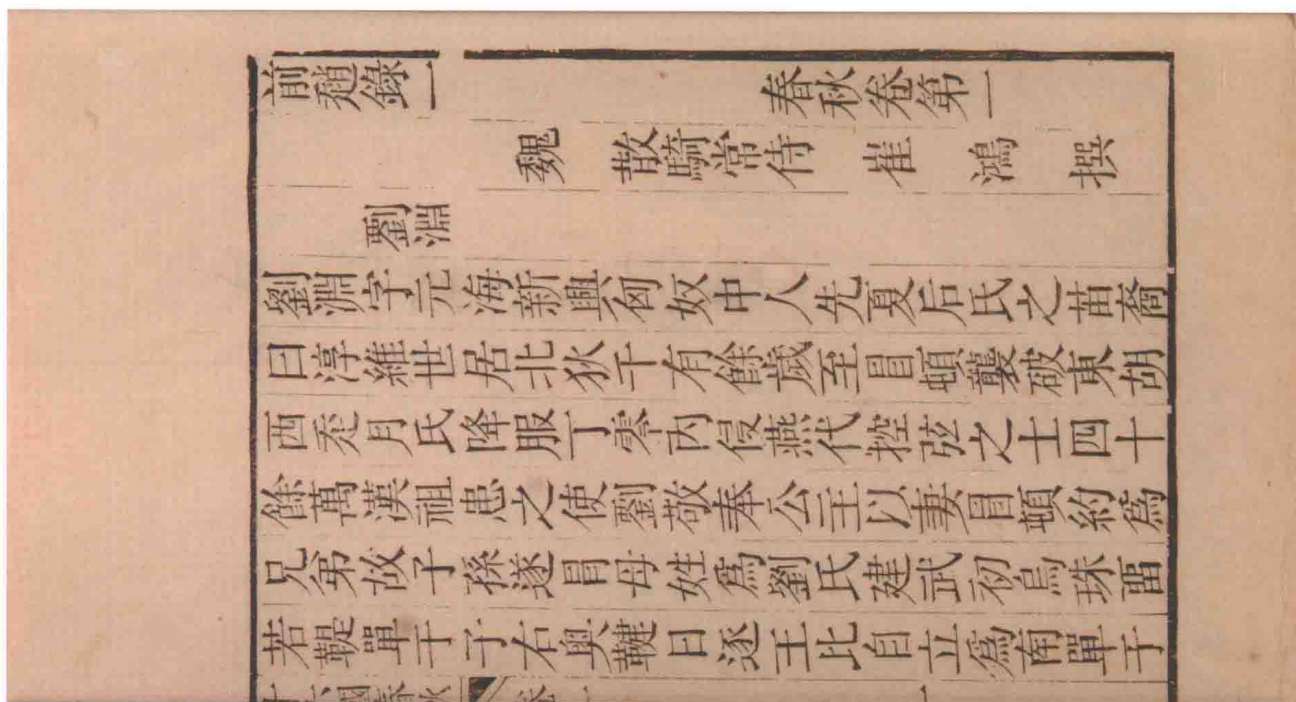 前趙錄一 春秋卷第一
魏 散騎常侍 崔 鴻 撰
劉淵
劉淵字元海新興匈奴中人先夏后氏之苗裔
曰淳維世居北狄千有餘歲至冒頓襲破東胡
西走月氏降服丁零內侵燕代控弦之士四十
餘萬漢祖患之使劉敬奉公主以妻冒頓約爲
兄弟故子孫遂冒母姓爲劉氏建武初烏珠畱
若鞮單于子右奧鞬日逐王比自立爲南單于